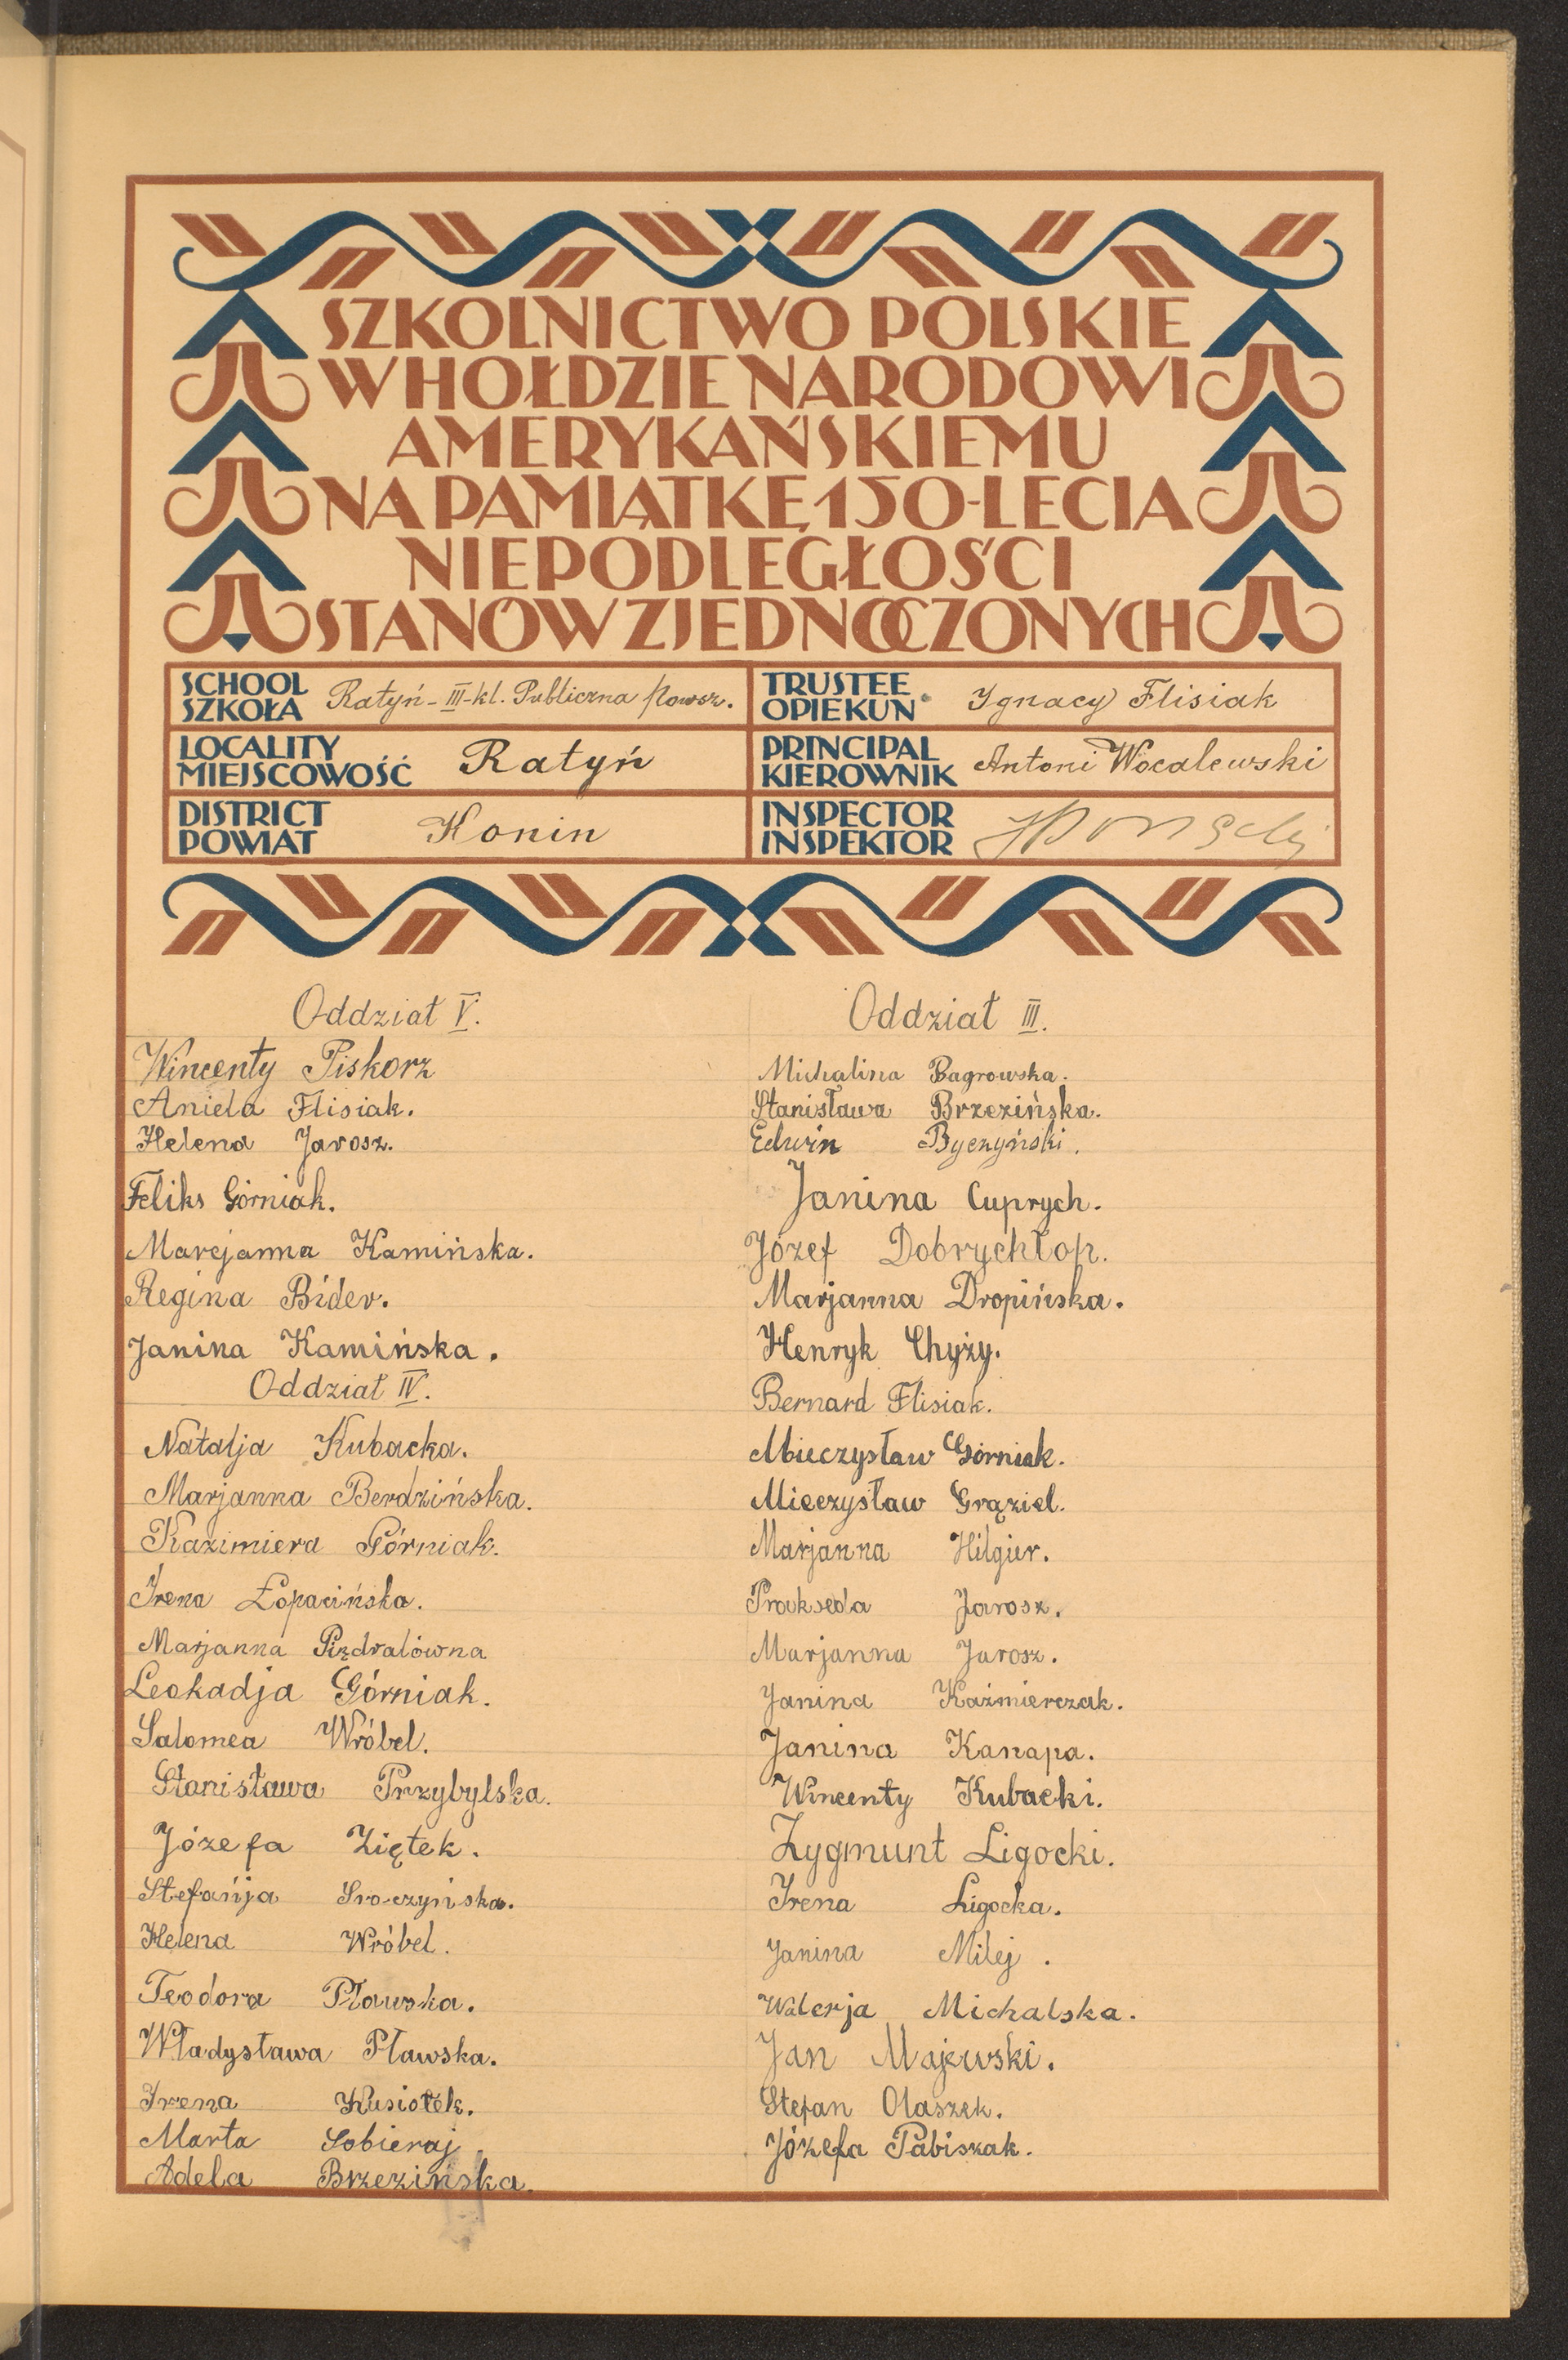 SZKOLNICTWO POLSKIE
W HOŁDZIE NARODOWI
AMERYKAŃSKIEMU
NA PAMIĄTKĘ 150-LECIA
NIEPODLEGŁOŚCI
STANÓW ZJEDNOCZONYCH
SCHOOL
SZKOŁA Ratyń-III-kl. Publiczna Powsz.
TRUSTEE
OPIEKUN Ignacy Flisiak
LOCALITY
MIEJSCOWOŚĆ Ratyń
PRINCIPAL
KIEROWNIK Antoni Wocalewski
DISTRICT
POWIAT Konin
INSPECTOR
INSPEKTOR
Oddział V.
Wincenty Piskorz
Aniela Flisiak.
Helena Jarosz.
Feliks Górniak.
Marcjanna Kamińska.
Regina Bider.
Janina Kamińska.
Oddział IV.
Natalja Kubacka.
Marjanna Berdzińska.
Kazimiera Górniak.
Irena Łopacińska.
Marjanna
Leokadja Górniak.
Salomea Wróbel.
Stanisława Przybylska.
Józefa Ziętek.
Stefańja Sroczyńska.
Helena Wróbel.
Teodora Pławska.
Władysława Pławska.
Irena Kusiołek.
Marta Sobieraj.
Adela Brzezińska.
Oddział III.
Michalina Bagrowska.
Stanisława Brzezińska.
Edwin Byczyński.
Janina Cuprych.
Józef Dobrychłop.
Marjanna Dropińska.
Henryk Chyży.
Bernard Flisiak.
Mieczysław Górniak.
Mieczysław Grąziel.
Marjanna Hilgier.
Prakseda Jarosz.
Marjanna Jarosz.
Janina Kaźmierczak.
Janina Kanapa.
Wincenty Kubacki.
Zygmunt Ligocki.
Irena Ligocka.
Janina Milej.
Walerja Michalska.
Jan Majewski.
Stefan Olaszek.
Józefa Pabiszak.